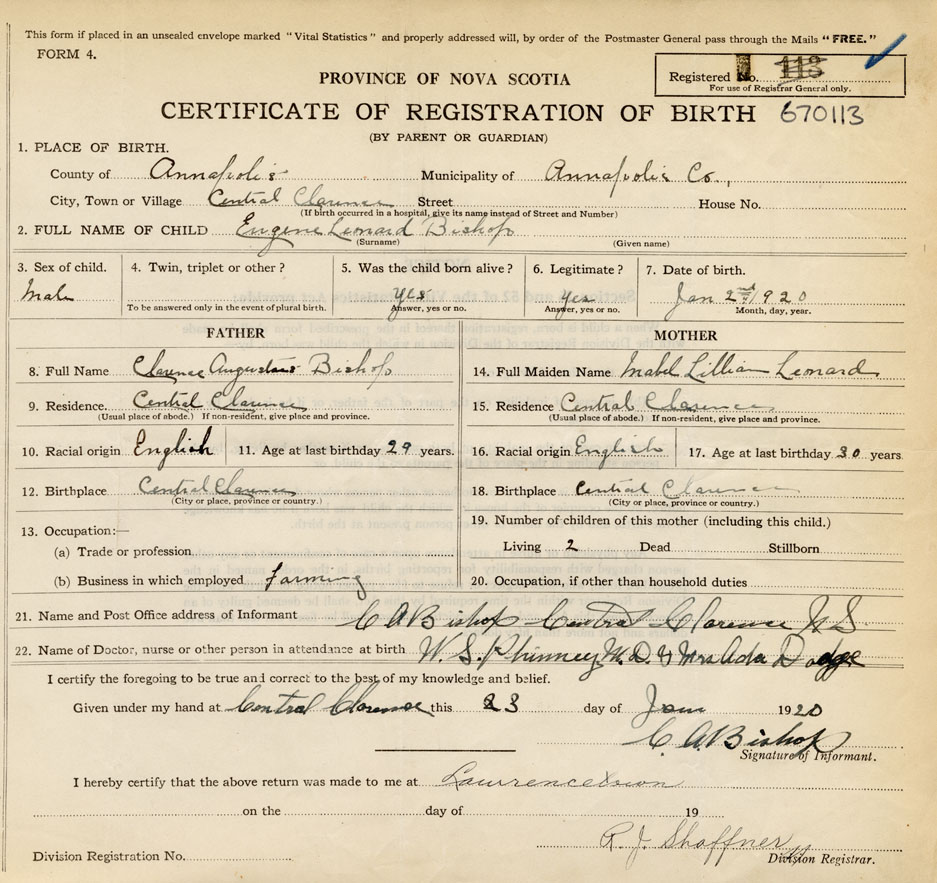 This form if placed in an unsealed envelope marked "Vital Statistics" and properly addressed will, by order of the Postmaster General pass through the Mails "FREE."
FORM 4.
Registered No. 113
For use of Registrar General only.
PROVINCE OF NOVA SCOTIA
CERTIFICATE OF REGISTRATION OF BIRTH 670113
(BY PARENT OR GUARDIAN)
1. PLACE OF BIRTH.
County of Annapolis Municipality of Annapolis Co.,
City, Town or Village Central Clarence Street House No.
(If birth occurred in a hospital, give its name instead of Street and Number)
2. FULL NAME OF CHILD Eugene Leonard Bishop
(Surname) (Given name)
3. Sex of child. 4. Twin, triplet or other? 5. Was the child born alive? 6. Legitimate? 7. Date of birth.
Male yes Yes Jan 2nd 1920
To be answered only in the event of plural birth. Answer, yes or no. Answer, yes or no. Month, day, year.
FATHER MOTHER
8. Full Name Clarence Augustus Bishop 14. Full Maiden Name Mabel Lillian Leonard
9. Residence. Central Clarence 15. Residence Central Clarence
(Usual place of abode.) If non-resident, give place and province. (Usual place of abode.) If non-resident, give place and province.
10. Racial origin English 11. Age at last birthday 29 years. 16. Racial origin English 17. Age at last birthday 30 years
12. Birthplace Central Clarence 18. Birthplace Central Clarence
(City or place, province or country.) (City or place, province or country.)
13. Occupation:— 19. Number of children of this mother (including this child.)
(a) Trade or profession Living 2 Dead Stillborn
(b) Business in which employed farming 20. Occupation, if other than household duties
21. Name and Post Office address of Informant C A Bishop Central Clarence N S
22. Name of Doctor, nurse or other person in attendance at birth W. S. Phinney M.D. & Mrs Ada Dodge
I certify the foregoing to be true and correct to the best of my knowledge and belief.
Given under my hand at Central Clarence this 23 day of Jan 1920
C. A. Bishop
Signature of Informant.
I hereby certify that the above return was made to me at Lawrencetown
on the day of 19
R. J. Shaffner
Division Registration No. Division Registrar.